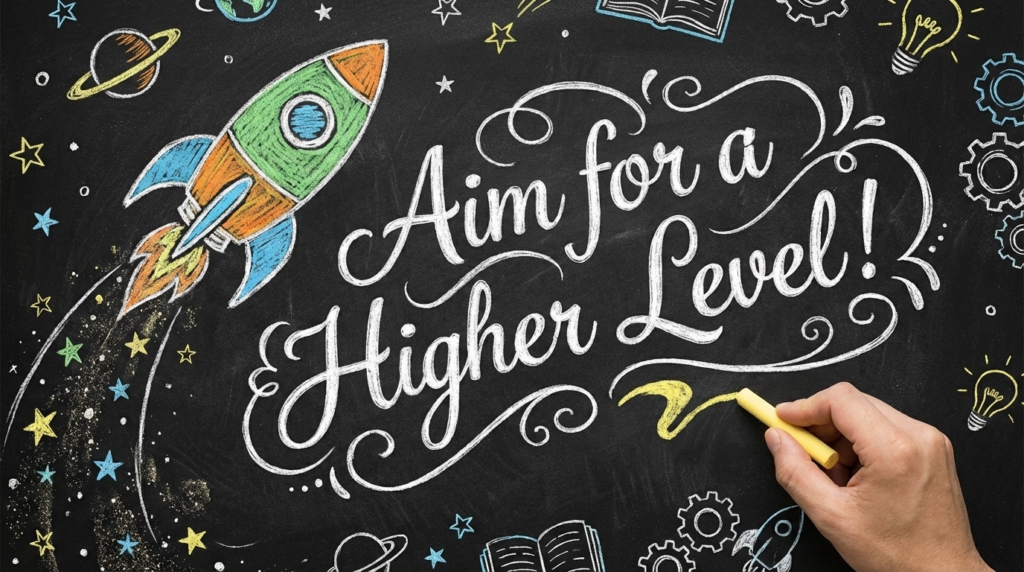 Aim for a
Higher Level!